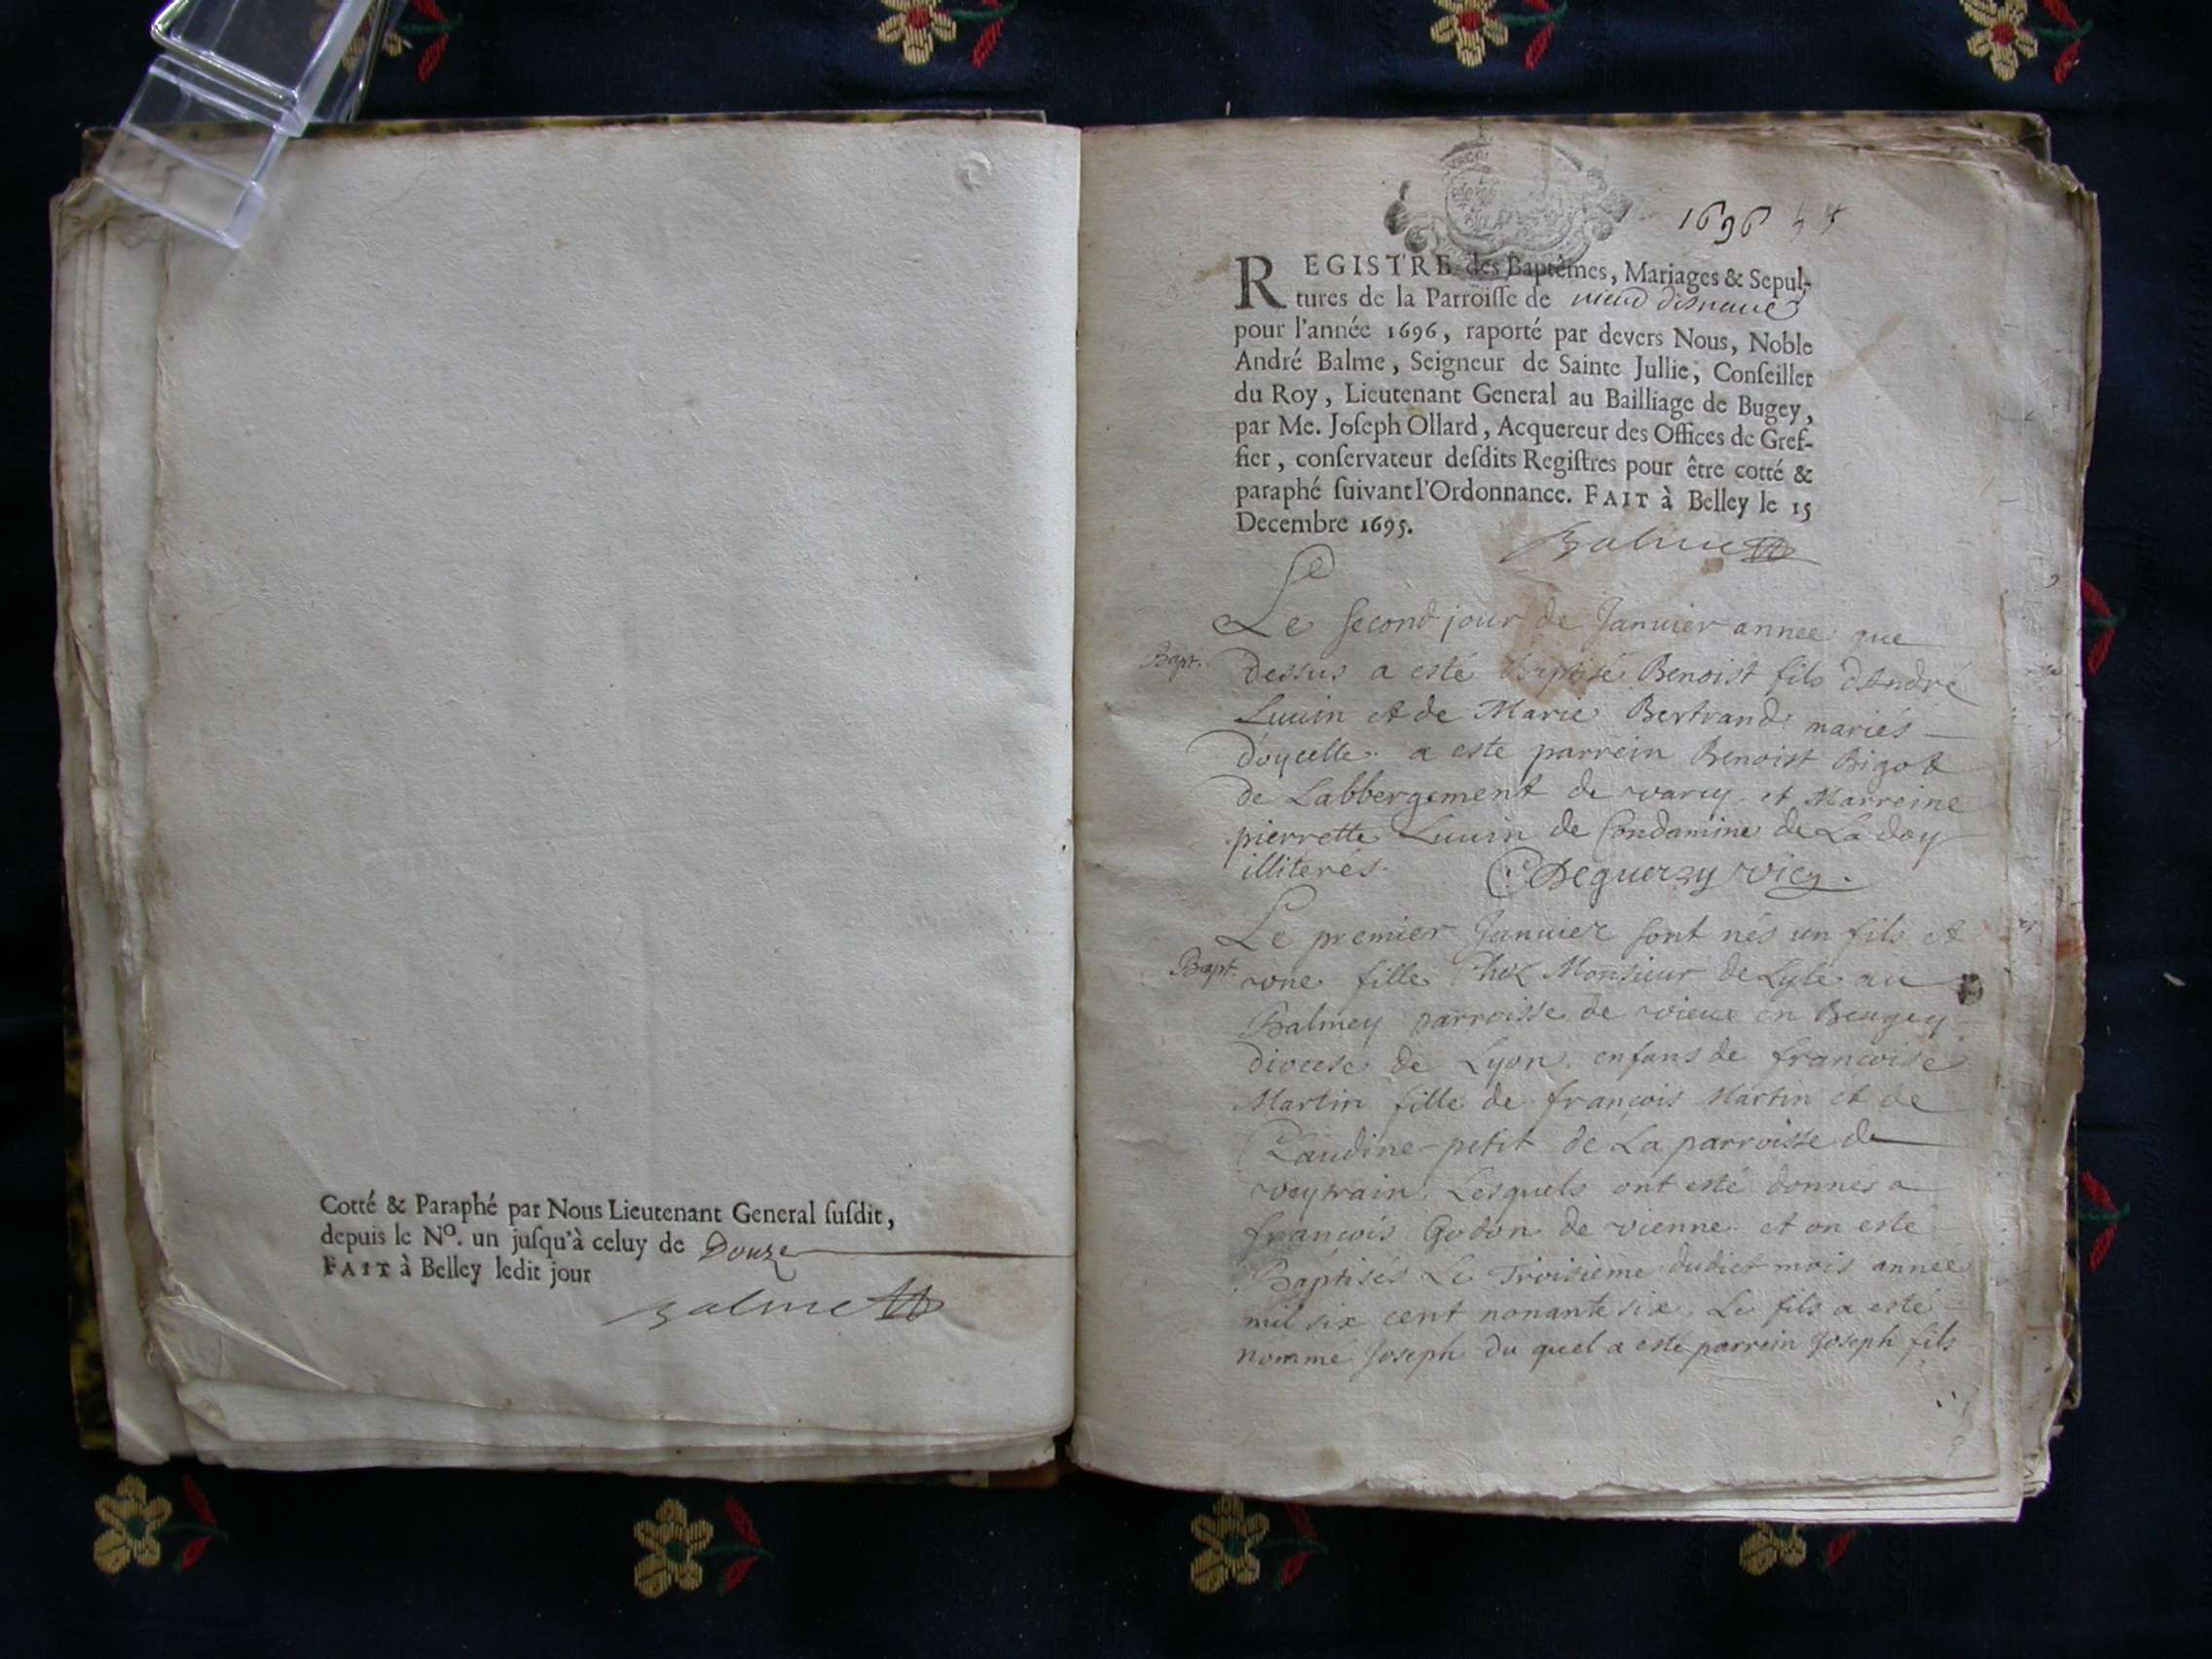 Cotté & Paraphé par Nous Lieutenant General ſuſdit,
depuis le No. un juſqu'à celuy de Douze
FAIT à Belley ledit jour
Balme
1696
REGISTRE des Baptêmes, Mariages & Sepul-
tures de la Parroiſſe de vieud d'Isnave
pour l'année 1696, raporté par devers Nous, Noble
André Balme, Seigneur de Sainte Jullie, Conſeiller
du Roy, Lieutenant General au Bailliage de Bugey,
par Me. Joſeph Ollard, Acquereur des Offices de Gref-
fier, conſervateur deſdits Regiſtres pour être cotté &
paraphé ſuivant l'Ordonnance. FAIT à Belley le 15
Decembre 1695.
Balme
Le second jour de Januier annee que
Bapt.
dessus a esté Baptisé Benoist fils d'André
Luuin et de Marie Bertrand mariés
d'oycelle a este parrein Benoist Bigot
de Labbergement de varey et Marreine
pierrette Luuin de Condamine de La doy
illiterés. Deguerzy vicq.
Le premier Januier sont nés un fils et
Bapt.
vne fille Chez Monsieur de Lyle au
Balmey parroisse de vieux en Beugey
diocese de Lyon enfans de francoise
Martin fille de françois Martin et de
Claudine petit de La parroisse de
veyrain. Lesquels ont esté donnés a
francois Godon de vienne et on esté
Baptisés Le Troisième dudict mois annee
mil six cent nonante six. Le fils a esté
nommé Joseph du quel a esté parrein Joseph fils